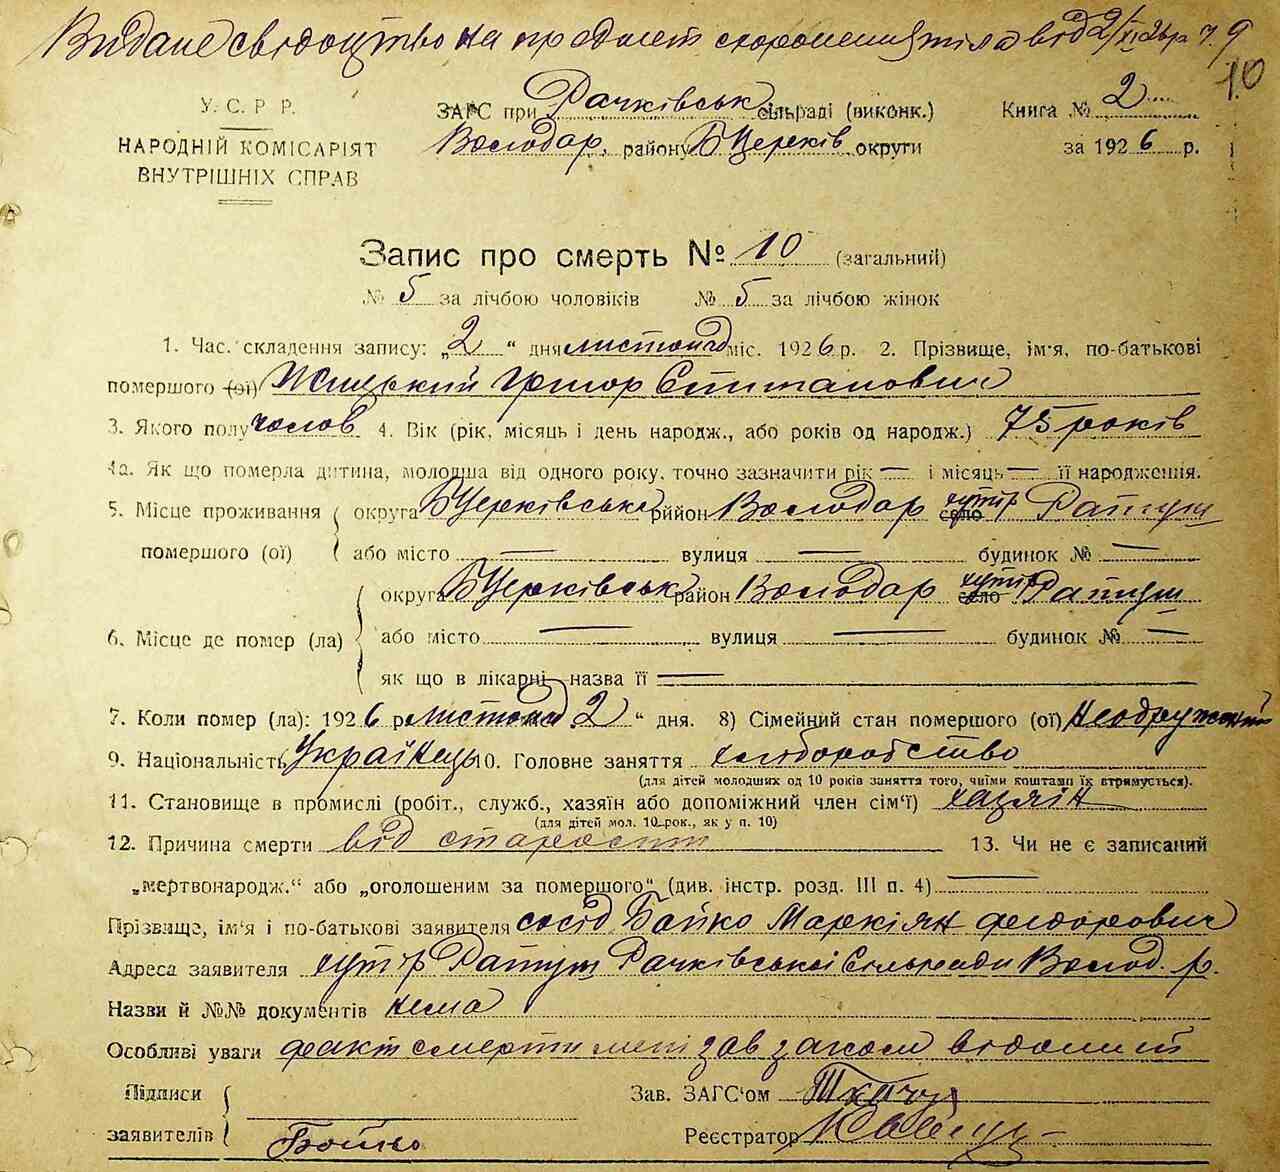 Видане свідоцтво на предмет схоронення тіла від 2/XI 26 р. ч. 9
10
У.С.Р.Р.
НАРОДНІЙ КОМІСАРІЯТ
ВНУТРІШНІХ СПРАВ
ЗАГС при Рачківськ сільраді (виконк.)
Володар. району Б Церків округи
Книга № 2
за 1926 р.
Запис про смерть № 10 (загальний)
№ 5 за лічбою чоловіків № 5 за лічбою жінок
1. Час. складення запису: „2“ дня листопад міс. 1926 р. 2. Прізвище, ім'я, по-батькові
помершого (ої) Григор Степанович
3. Якого полу чолов 4. Вік (рік, місяць і день народж., або років од народж.) 75 років
4а. Як що померла дитина, молодша від одного року, точно зазначити рік — і місяць — її народження.
5. Місце проживання помершого (ої) округа БЦерківська район Володар село хутір Ратуш
або місто — вулиця — будинок № —
6. Місце де помер (ла) округа БЦерківськ район Володар село хутір Ратуш
або місто — вулиця — будинок № —
як що в лікарні, назва її —
7. Коли помер (ла): 1926 р. листопад 2 “ дня. 8) Сімейний стан помершого (ої) неодружений
9. Національність Українець 10. Головне заняття хліборобство
(для дітей молодших од 10 років заняття того, чиїми коштами їх втримується).
11. Становище в промислі (робіт., служб., хазяїн або допоміжний член сім'ї) хазяїн
(для дітей мол. 10 рок., як у п. 10)
12. Причина смерти від старости 13. Чи не є записаний
„мертвонародж.“ або „оголошеним за помершого“ (див. інстр. розд. III п. 4) —
Прізвище, ім'я і по-батькові заявителя сосід Бойко Маркіян Федорович
Адреса заявителя хутір Ратуш Рачківської Сільради Волод. р.
Назви й №№ документів нема
Особливі уваги факт смерти мені зав загсом відомий
Підписи заявителів Бойко
Зав. ЗАГС'ом Ткачук
Реєстратор